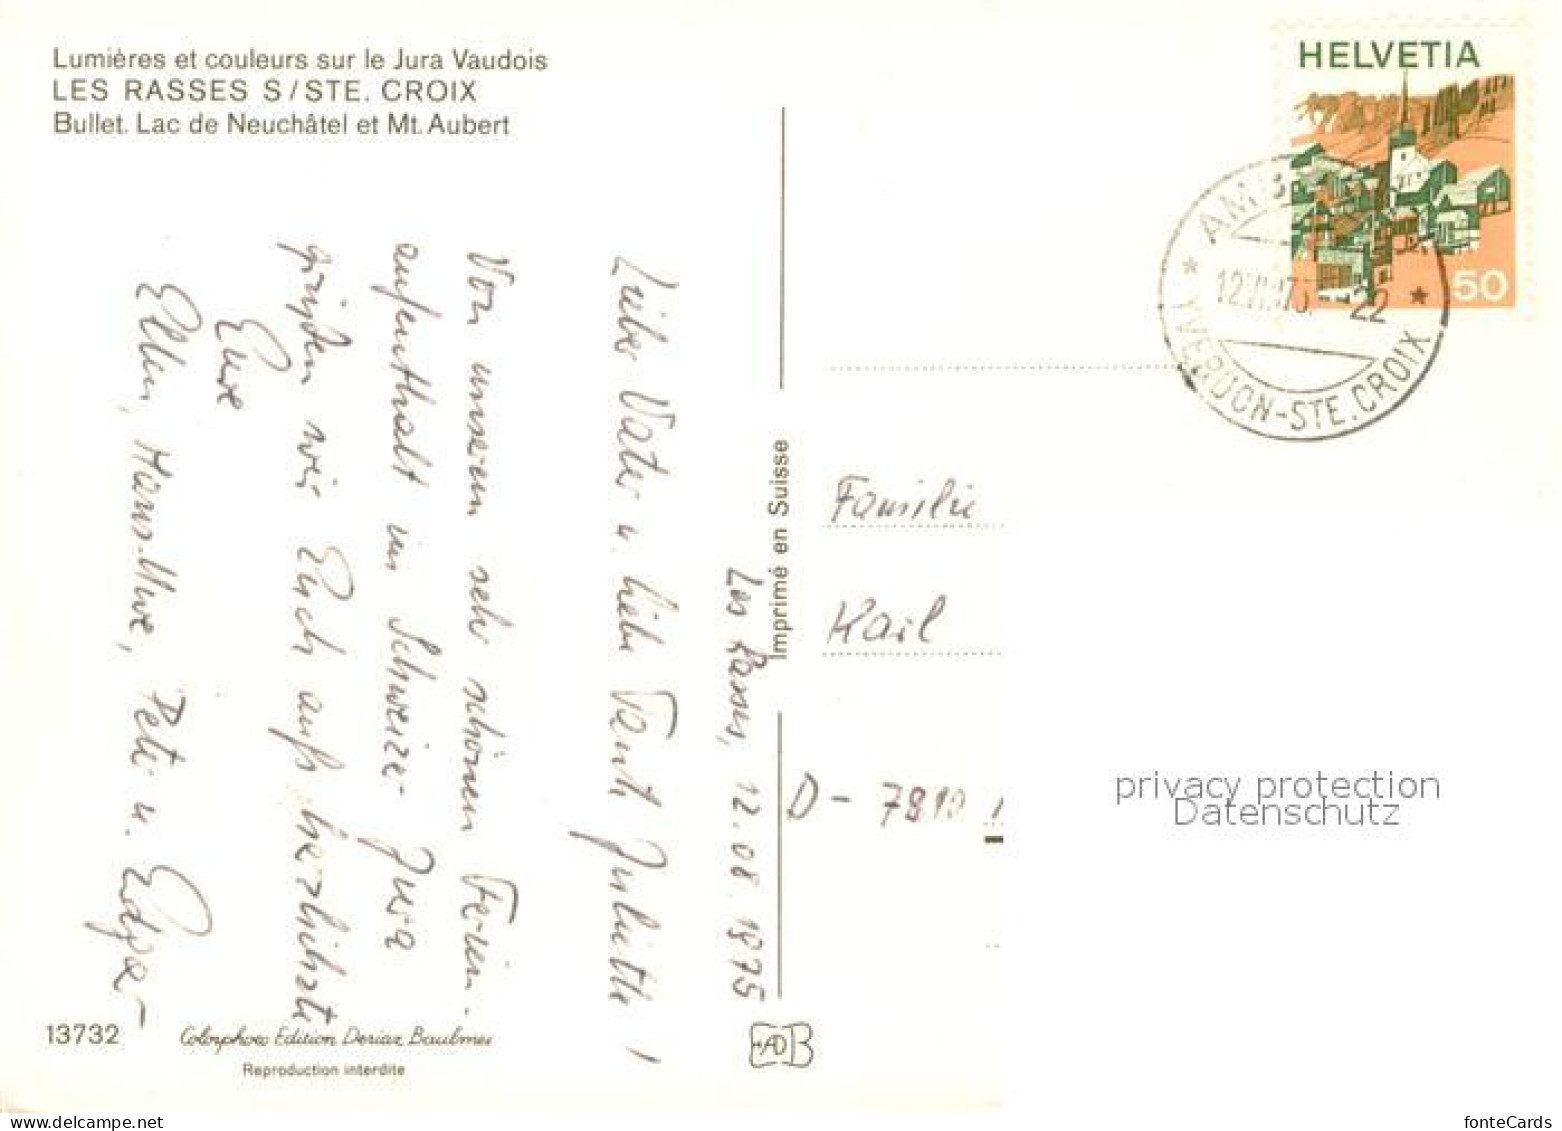 Lumières et couleurs sur le Jura Vaudois
LES RASSES S/STE. CROIX
Bullet. Lac de Neuchâtel et Mt. Aubert
HELVETIA
50
AMB
12.VI
22
YVERDON-STE.CROIX
Les Rasses, 12.08.1975
Liebe Vater u. liebe Tante Juliette!
Von unserem sehr schönen Ferien-
aufenthalt im Schweizer Jura
grüßen wir Euch aufs herzlichste
Eure
Ellen, Hans-Uwe, Peti u. Edgar
Imprimé en Suisse
Familie
Karl
D - 7910
privacy protection
Datenschutz
13732
Colorphoto Edition Deriaz Baulmes
Reproduction interdite
fonteCards
www.delcampe.net